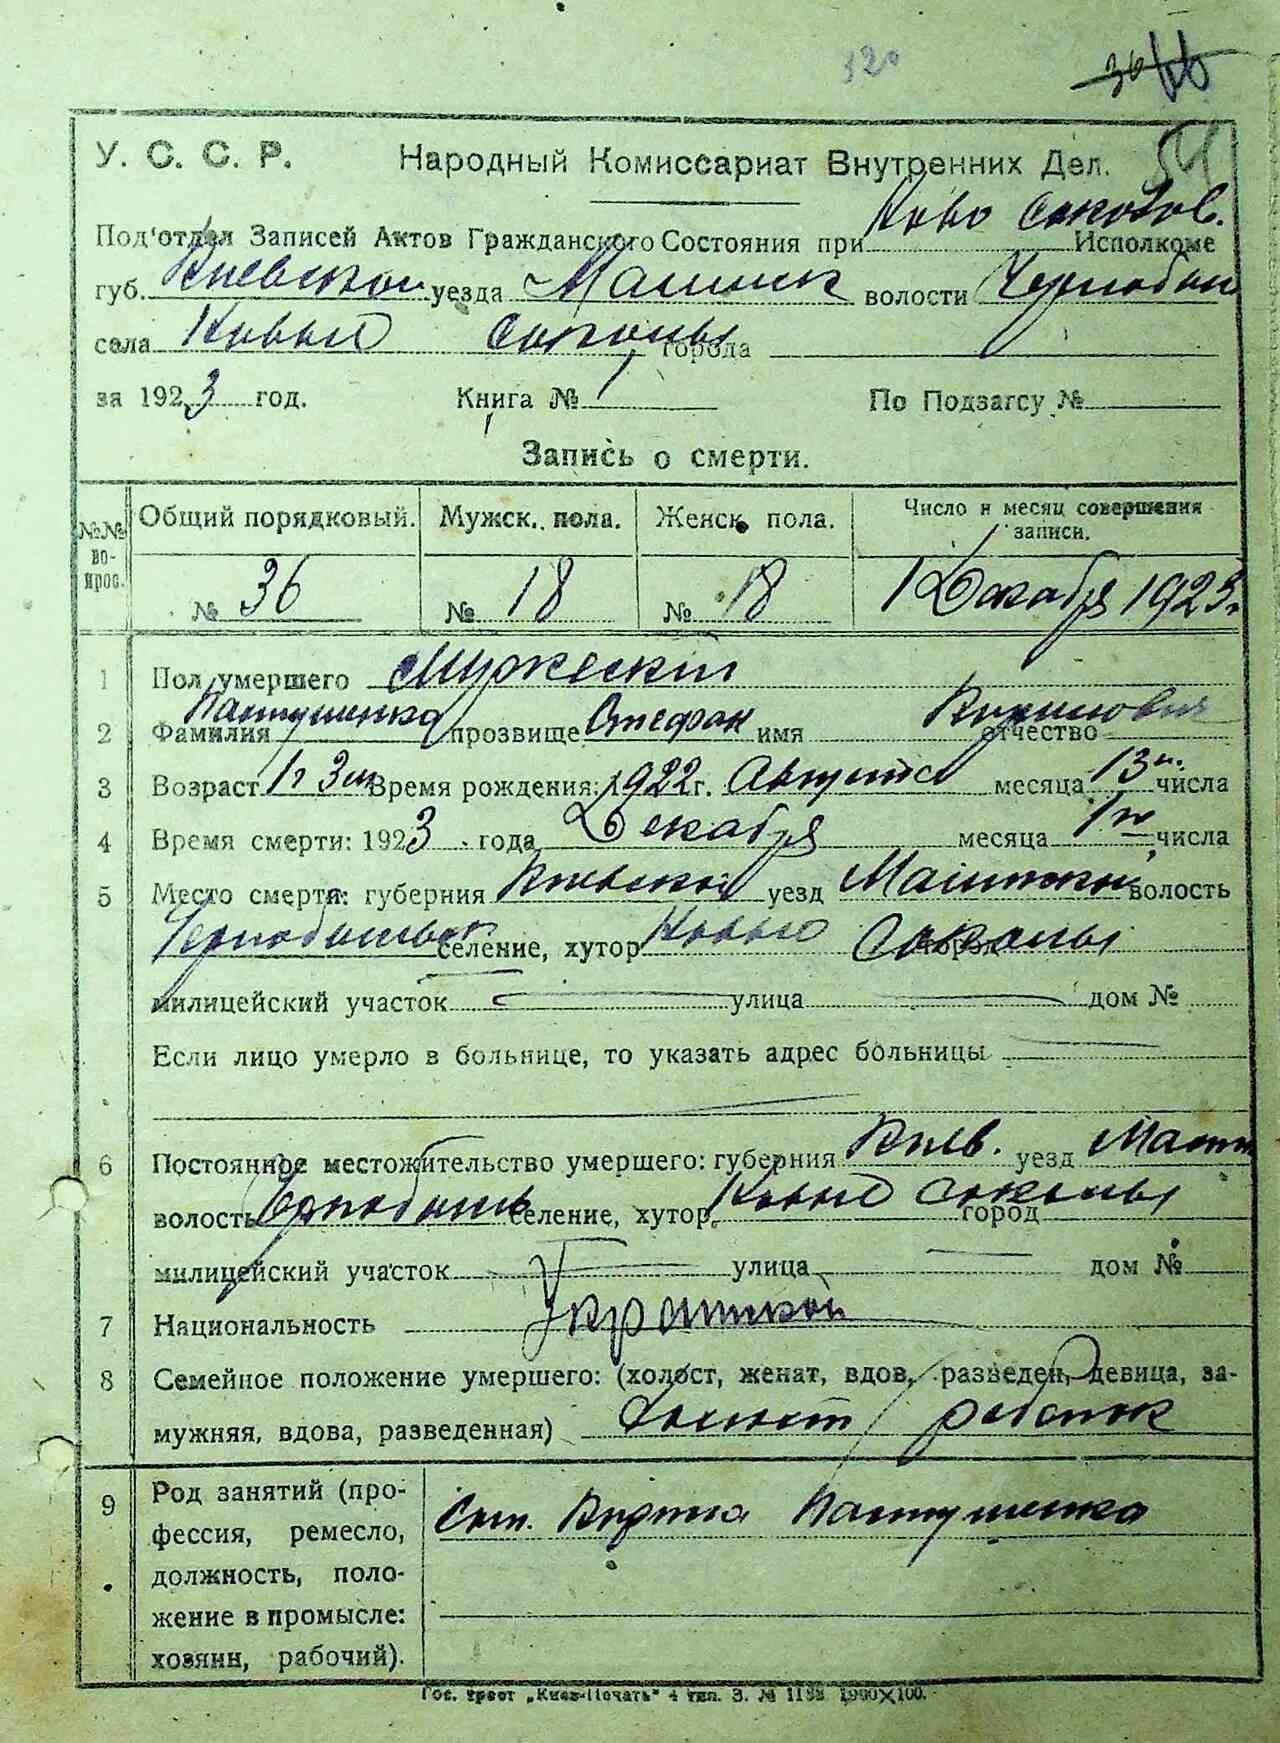 320
36
54
У. С. С. Р. Народный Комиссариат Внутренних Дел.
Под'отдел Записей Актов Гражданского Состояния при Ново Соколов. Исполкоме
губ. Киевской уезда Малинск волости Чернобыл
села Новые Соколы города
за 1923 год. Книга № По Подзагсу №
Запись о смерти.
№№ вопрос. Общий порядковый. Мужск. пола. Женск. пола. Число и месяц совершения записи.
№ 36 № 18 № 18 1 Декабря 1923 г.
1 Пол умершего Мужеский
2 Фамилия Пантушенко прозвище Стефан имя отчество
3 Возраст 1 г 3 м Время рождения: 1922 г. Августа месяца 13 числа
4 Время смерти: 1923 года Декабря месяца 1 числа
5 Место смерти: губерния Киевская уезд волость
селение, хутор Новые Соколы город
милицейский участок улица дом №
Если лицо умерло в больнице, то указать адрес больницы
6 Постоянное местожительство умершего: губерния Киев. уезд
волость селение, хутор, Новые Соколы город
милицейский участок улица дом №
7 Национальность
8 Семейное положение умершего: (холост, женат, вдов, разведен, девица, за-
мужняя, вдова, разведенная) Холост ребенок
9 Род занятий (про-
фессия, ремесло,
должность, поло-
жение в промысле:
хозяин, рабочий).
Сын Пантушенка
Гос. трест „Киев-Печать" 4 тип. З. № 1100×100.